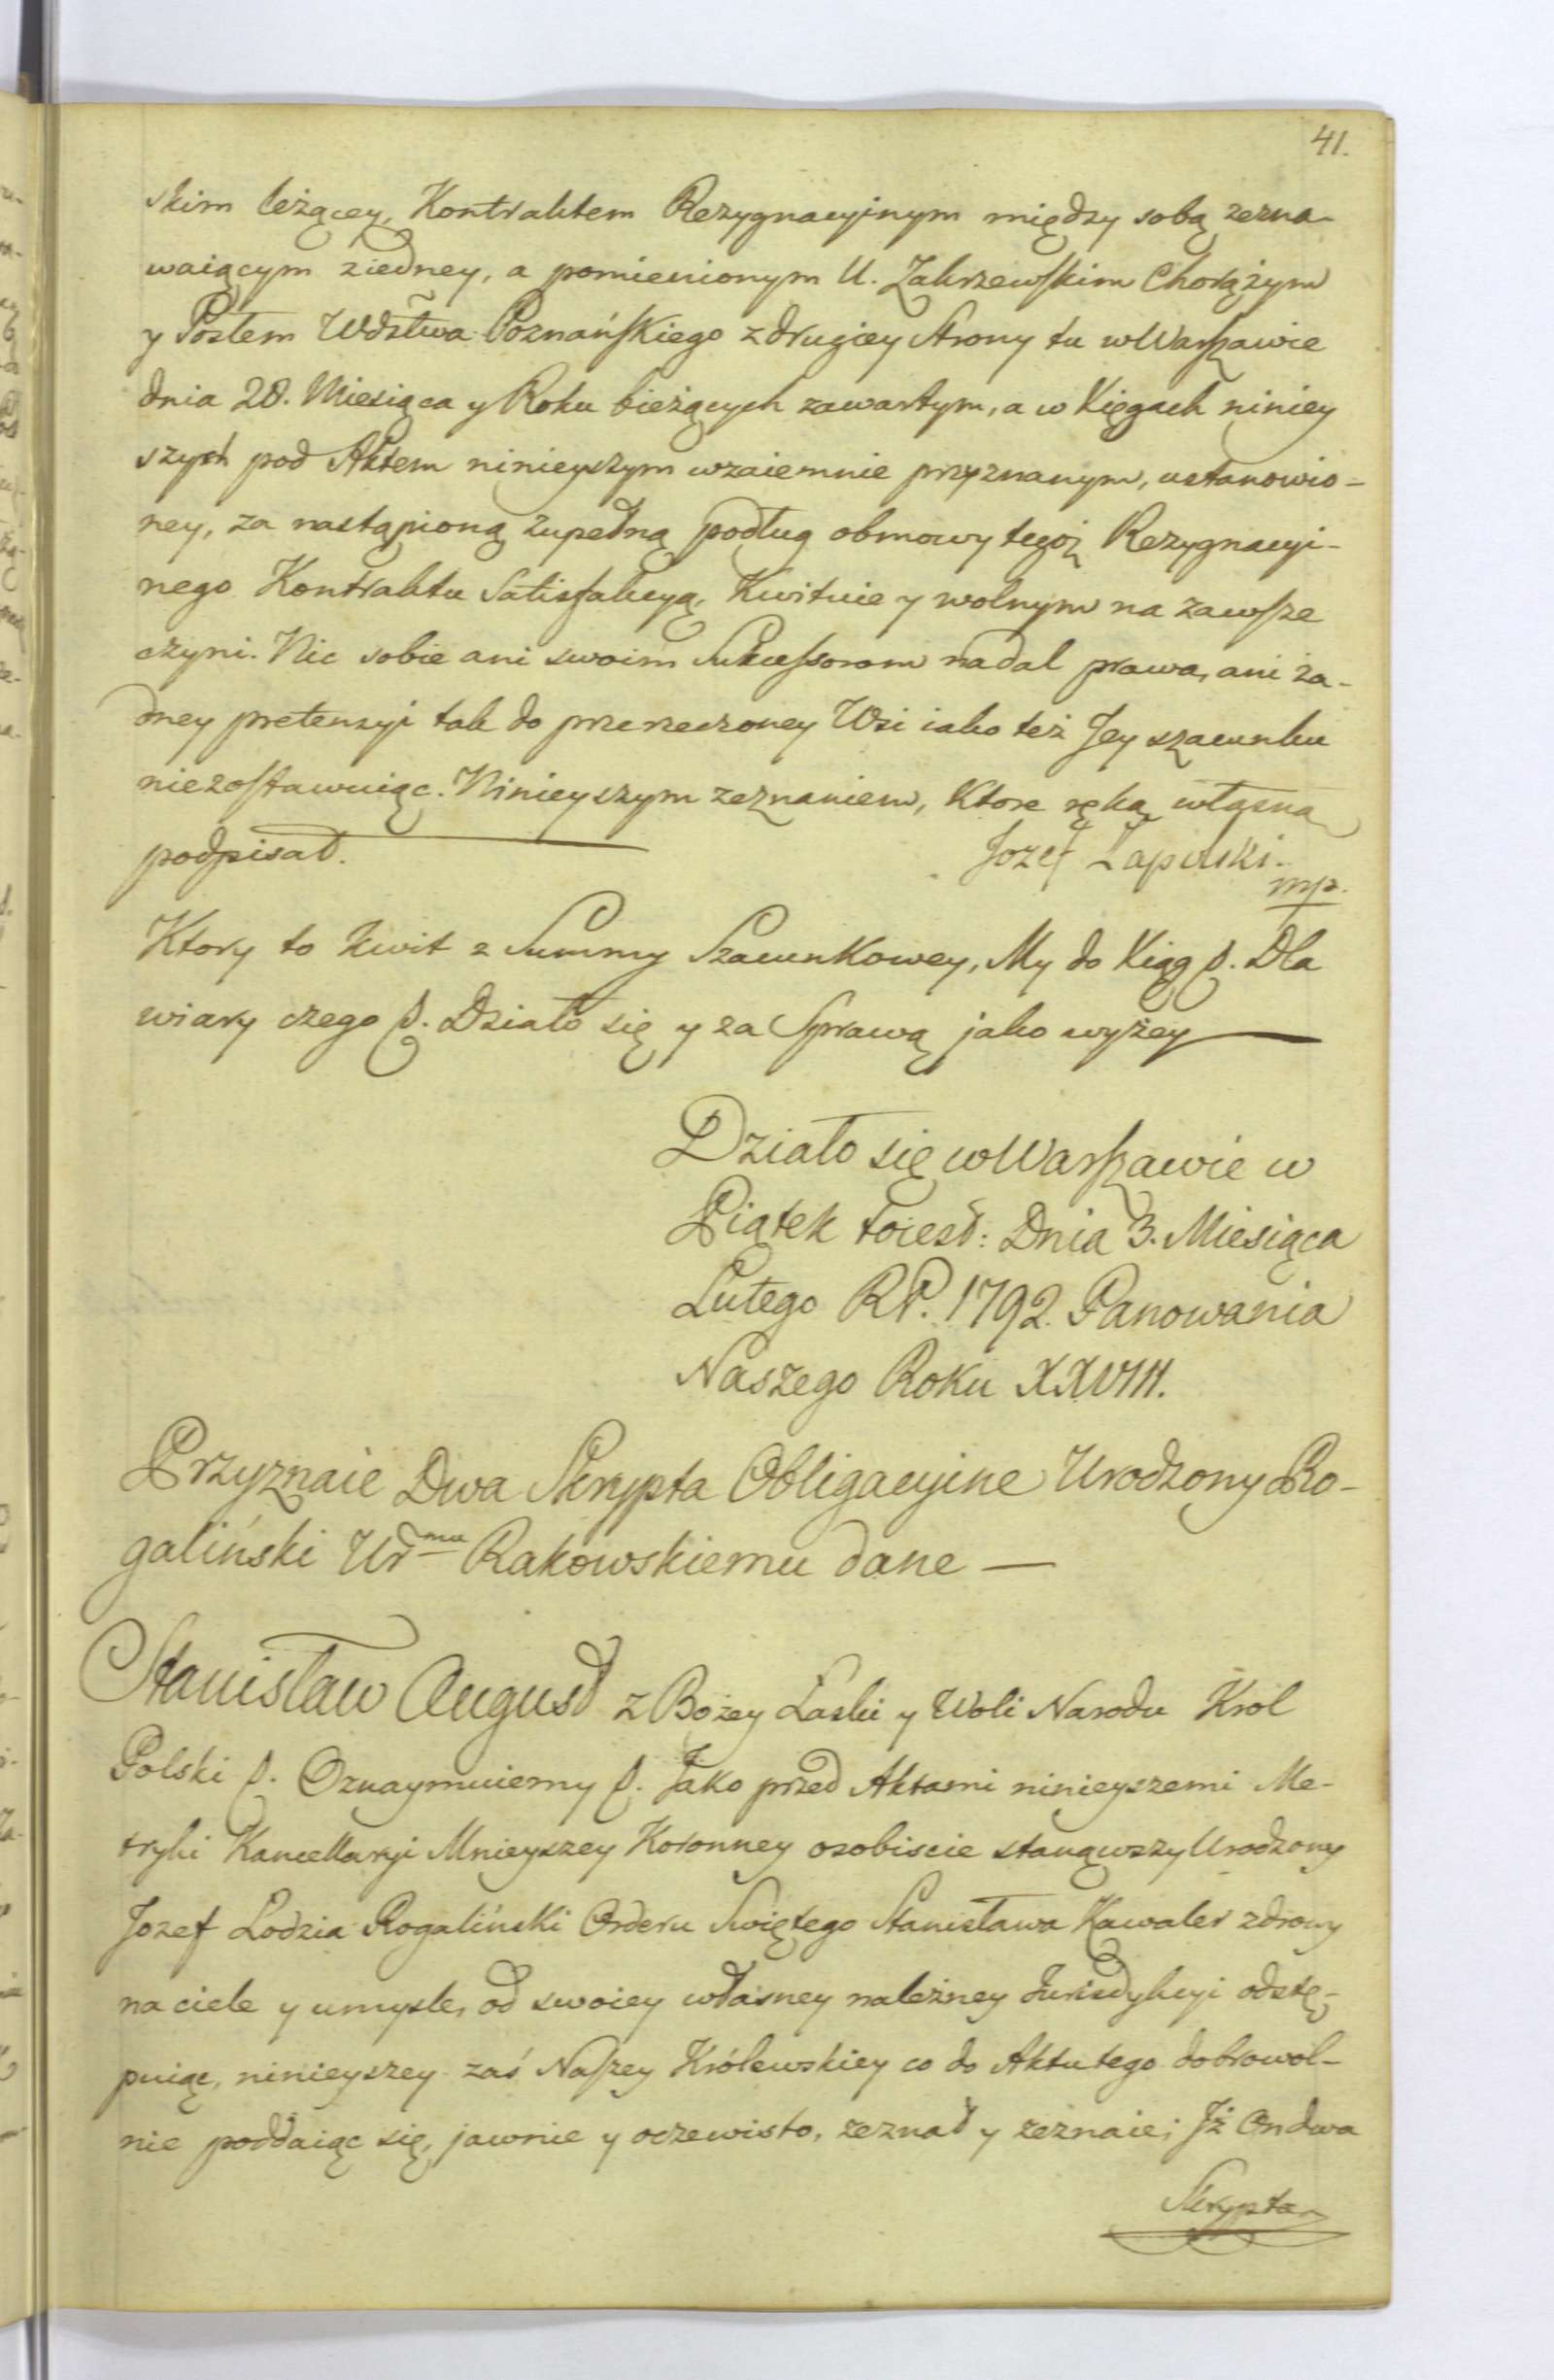 41.
skim leżącey, Kontraktem Rezygnacyinym między sobą zezna-
waiącym ziedney, a pomienionym U. Zakrzewskim Chorążym
y Posłem Wdztwa Poznańskiego z drugiey strony tu w Warszawie
dnia 28. Miesiąca y Roku bieżących zawartym, a w Xięgach niniey
szych pod Aktem ninieyszym wzaiemnie przyznanym, ustanowio-
ney, za nastąpioną zupełną podług obmowy tegoż Rezygnacyi-
nego Kontraktu Satisfakcyą, Kwituie y wolnym na zawsze
czyni. Nic sobie ani swoim Sukcessorom nadal prawa, ani ża-
dney pretensyi tak do przerzeczoney Wsi iako też Jey szacunku
niezostawuiąc. Ninieyszym zeznaniem, Ktore ręką własną
podpisał. Jozef Łapinski
mp.
Ktory to Kwit z Summy Szacunkowey, My do Xiąg &. Dla
wiary czego &. Działo się y za Sprawą jako wyżey
Działo się w Warszawie w
Piątek toiest: Dnia 3. Miesiąca
Lutego RP. 1792. Panowania
Naszego Roku XXVIII.
Przyznaie Dwa Skrypta Obligacyine Urodzony Ro-
galiński Urmu Rakowskiemu dane —
Stanisław August z Bożey Łaski y Woli Narodu Krol
Polski &. Oznaymuiemy &. Jako przed Aktami ninieyszemi Me-
tryki Kancellaryi Mnieyszey Koronney osobiscie stanąwszy Urodzony
Jozef Lodzia Rogaliński Orderu Swiętego Stanisława Kawaler zdrowy
na ciele y umysle, od swoiey własney należney Jurisdykcyi odstę-
puiąc, ninieyszey zaś Naszey Królewskiey co do Aktu tego dobrowol-
nie poddaiąc się, jawnie y oczewisto, zeznał y zeznaie; Jż On dwa
Skrypta